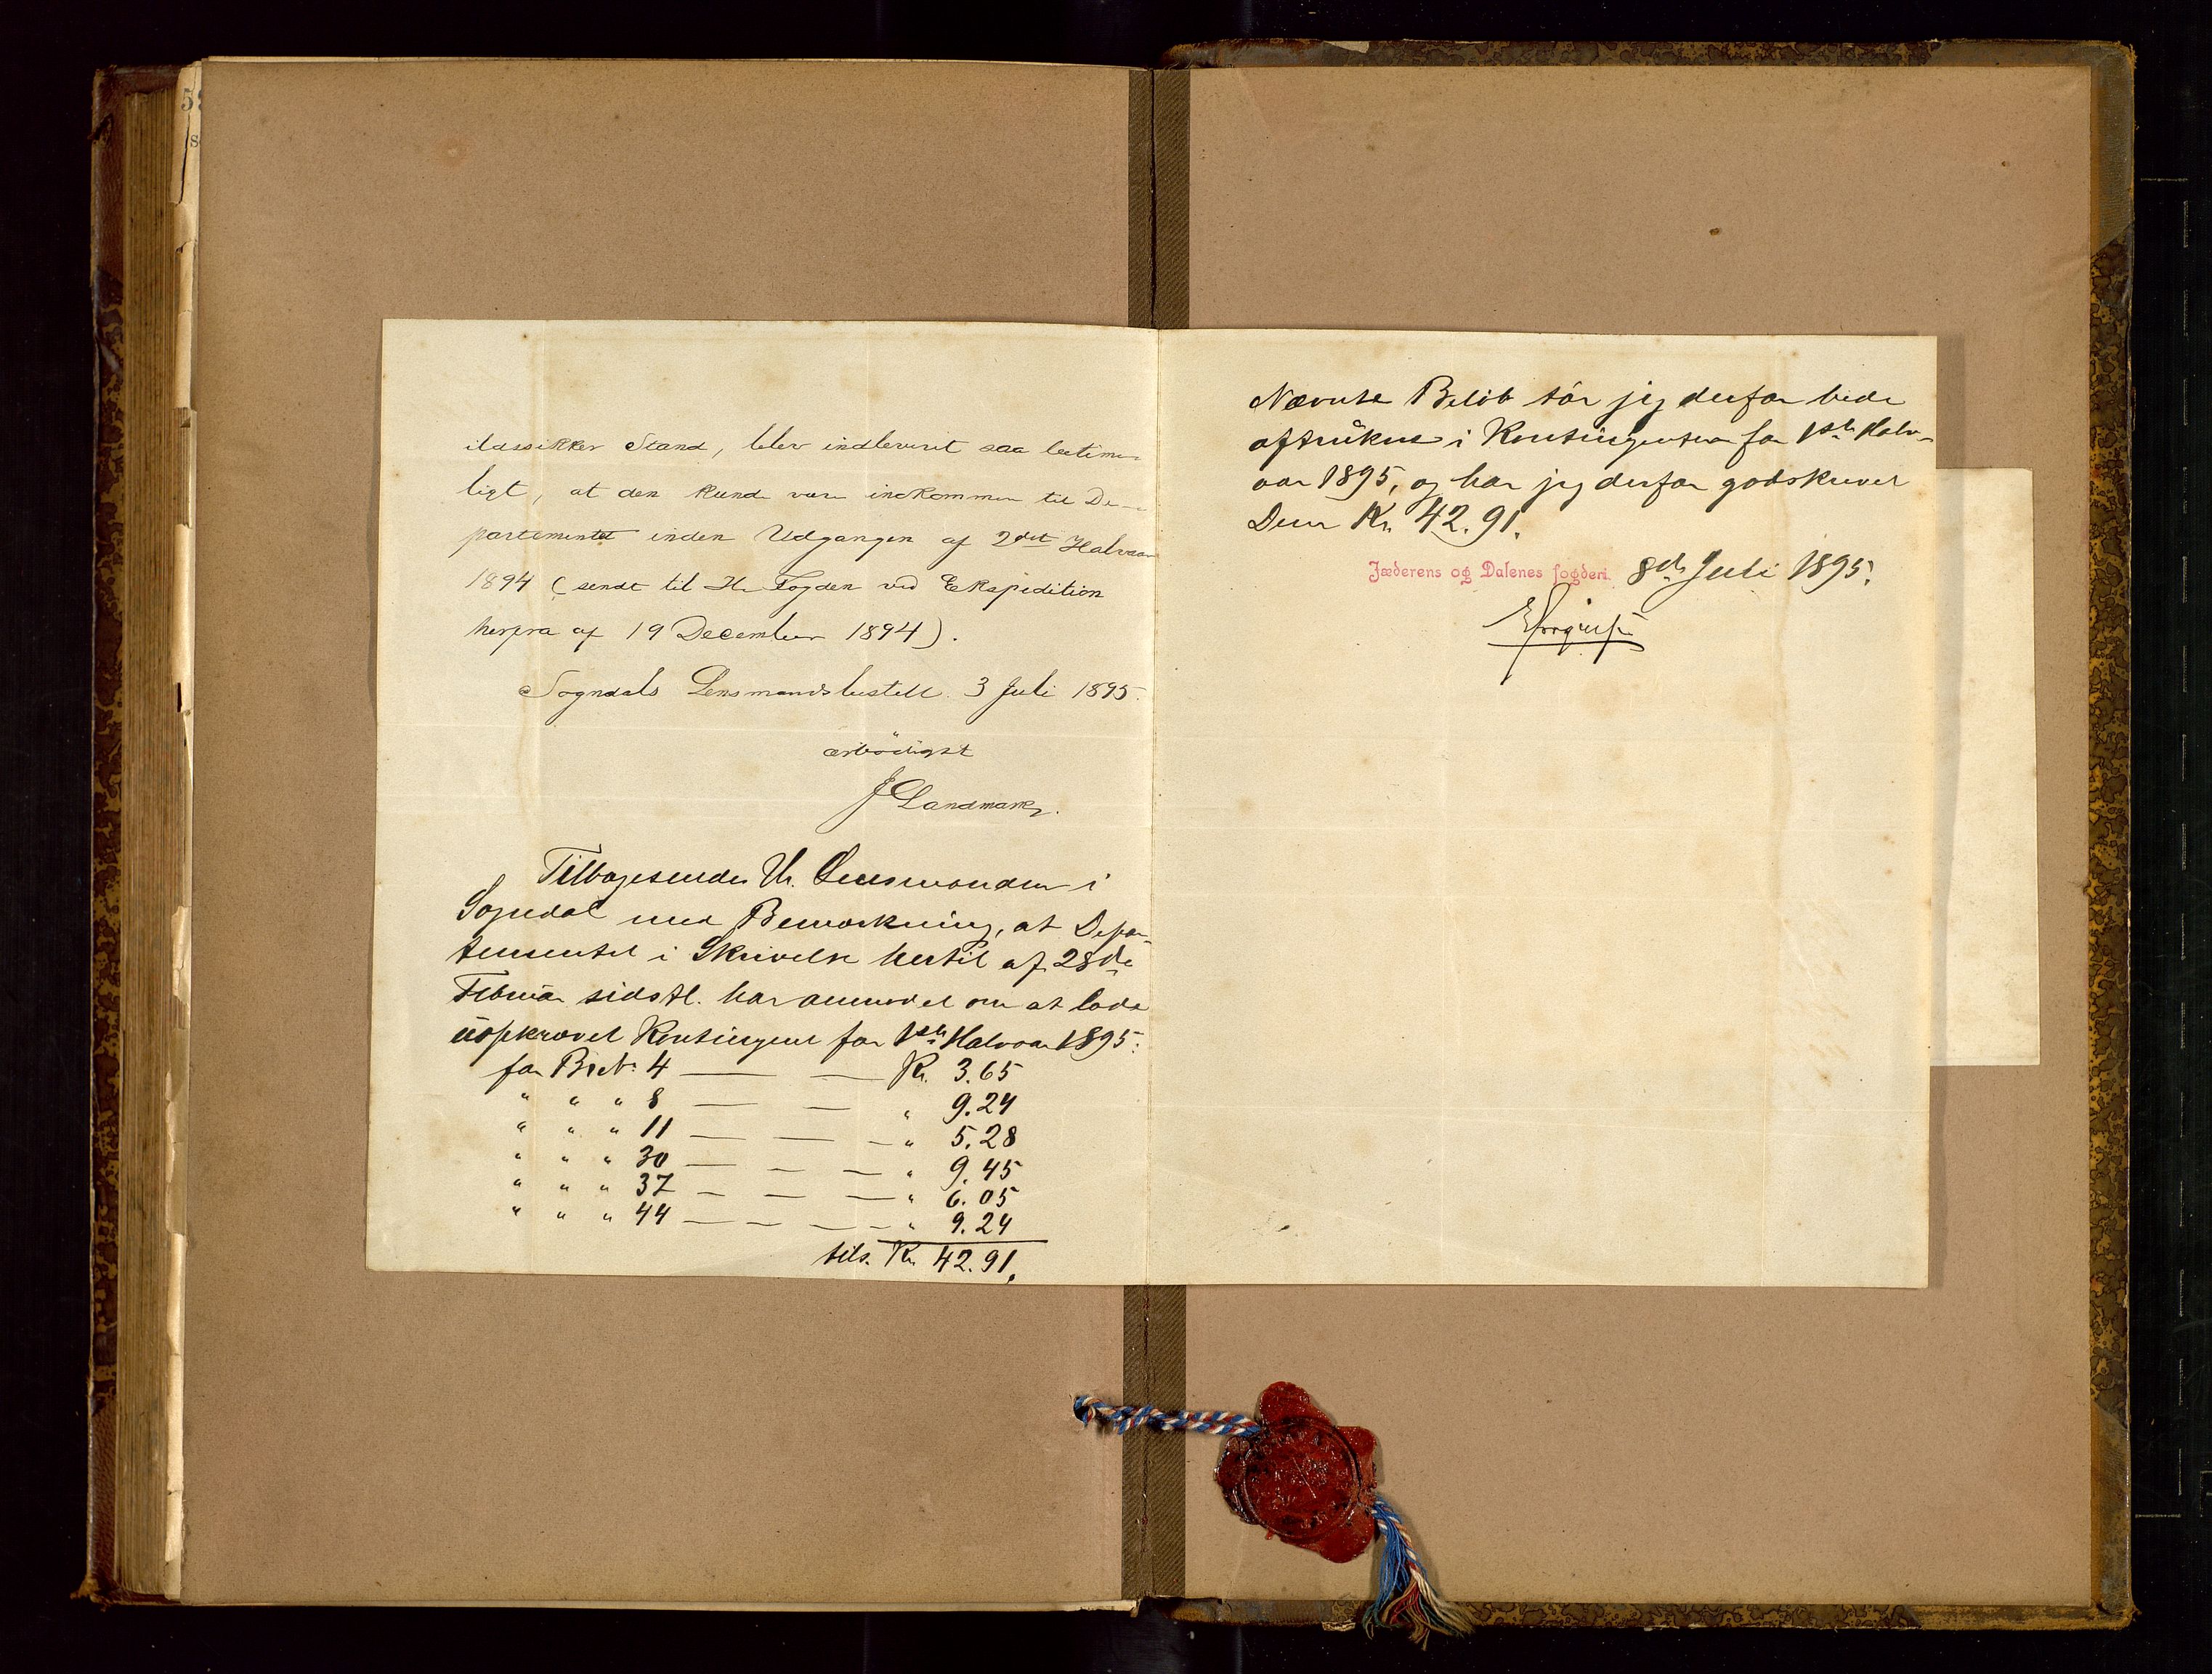 ildssikker Stand, blev indleveret saa betime-
ligt, at den kunde være indkommen til De-
partementet inden Udgangen af 2det Halvaar
1894 (sendt til Hr. Fogden ved Ekspedition
herfra af 19 December 1894).
Sogndals Lensmandsbestill. 3 Juli 1895.
ærbødigst
J Landmark.
Tilbagesendes Hr. Lensmanden i
Sogndal med Bemærkning, at Depar-
tementet i Skrivelse hertil af 28de
Februar sidstl. har anmodet om at lade
uopkrævet Kontingent for 1ste Halvaar 1895:
for Br.N: 4 — — Kr. 3.65
" " " 8 — — " 9.24
" " " 11 — — — " 5.28
" " " 30 — — — " 9.45
" " " 37 — — — " 6.05
" " " 44 — — — — " 9.24
tils. Kr. 42.91.
Nævnte Beløb tör jeg derfor bede
aftrukne i Kontingenten for 1ste Halv-
aar 1895, og har jeg derfor godskrevet
Dem Kr. 42.91.
Jæderens og Dalenes fogderi. 8de Juli 1895.